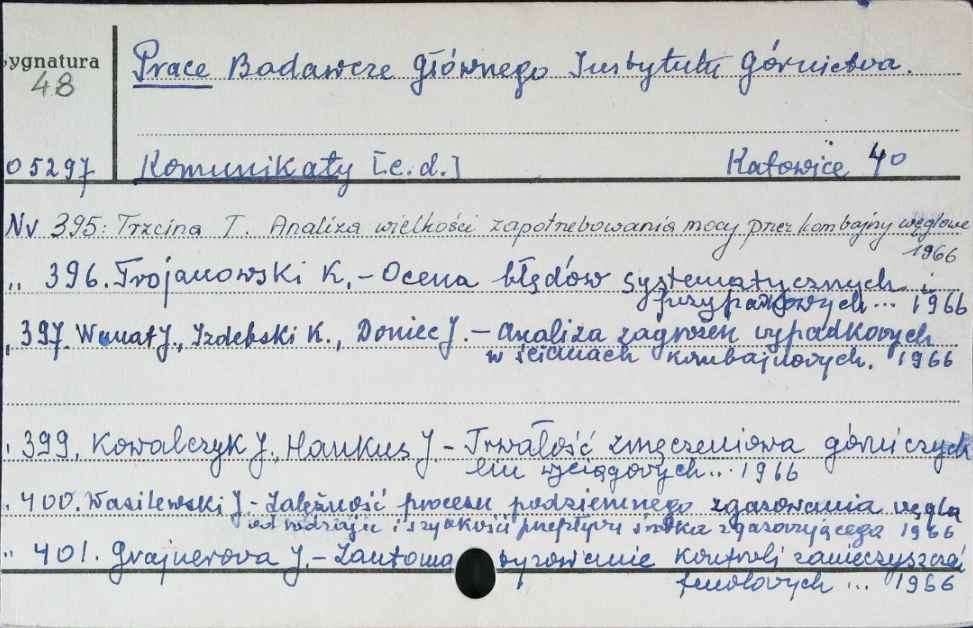 Sygnatura
48
Prace Badawcze Głównego Instytutu Górnictwa.
05297 Komunikaty [c.d.] Katowice 40
Nr 395: Trzcina T. Analiza wielkości zapotrzebowania mocy przez kombajny węglowe
1966
" 396. Trojanowski K. - Ocena błędów systematycznych i
przypadkowych... 1966
" 397. Wanat J., Izdebski K., Doniec J. - Analiza zagrożeń wypadkowych
w ścianach kombajnowych. 1966
" 399. Kowalczyk J., Hankus J - Trwałość zmęczeniowa górniczych
lin wyciągowych... 1966
" 400. Wasilewski J. - Zależność procesu podziemnego zgazowania węgla
od rodzaju i szybkości przepływu środka zgazowującego 1966
" 401. Grajnerowa J. - Zautomatyzowanie kontroli zanieczyszczeń
fenolowych ... 1966